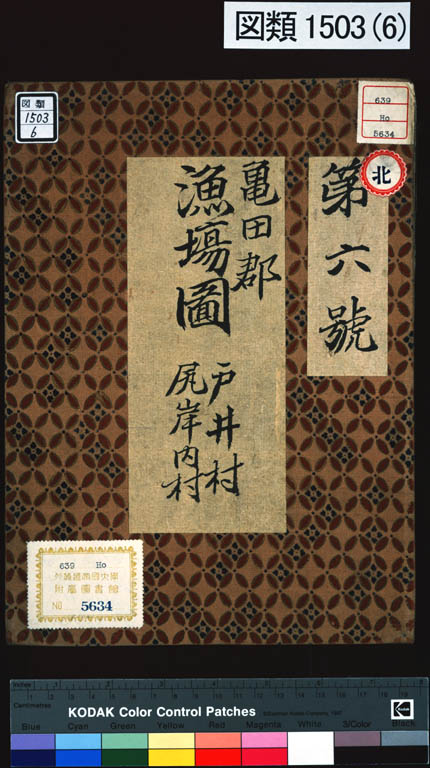 図類1503(6)
図類
1503
6
639
Ho
5634
北
第六號
亀田郡
漁場圖
戸井村
尻岸内村
639 Ho
附屬圖書館
NO. 5634
Inches
Centimetres
KODAK Color Control Patches
Blue Cyan Green Yellow Red Magenta White 3/Color Black
Kodak